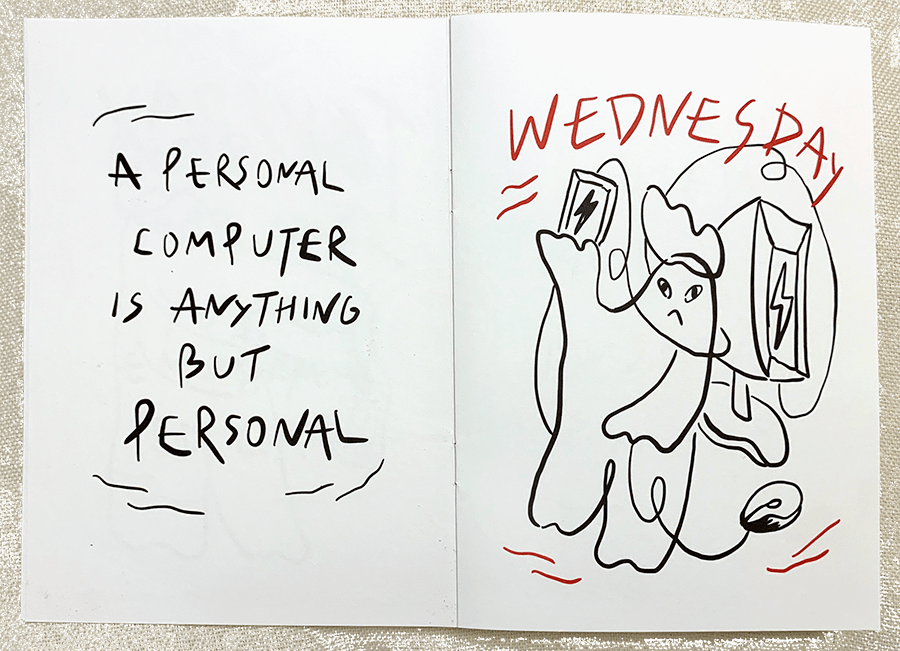 A PERSONAL
COMPUTER
IS ANYTHING
BUT
PERSONAL
WEDNESDAY